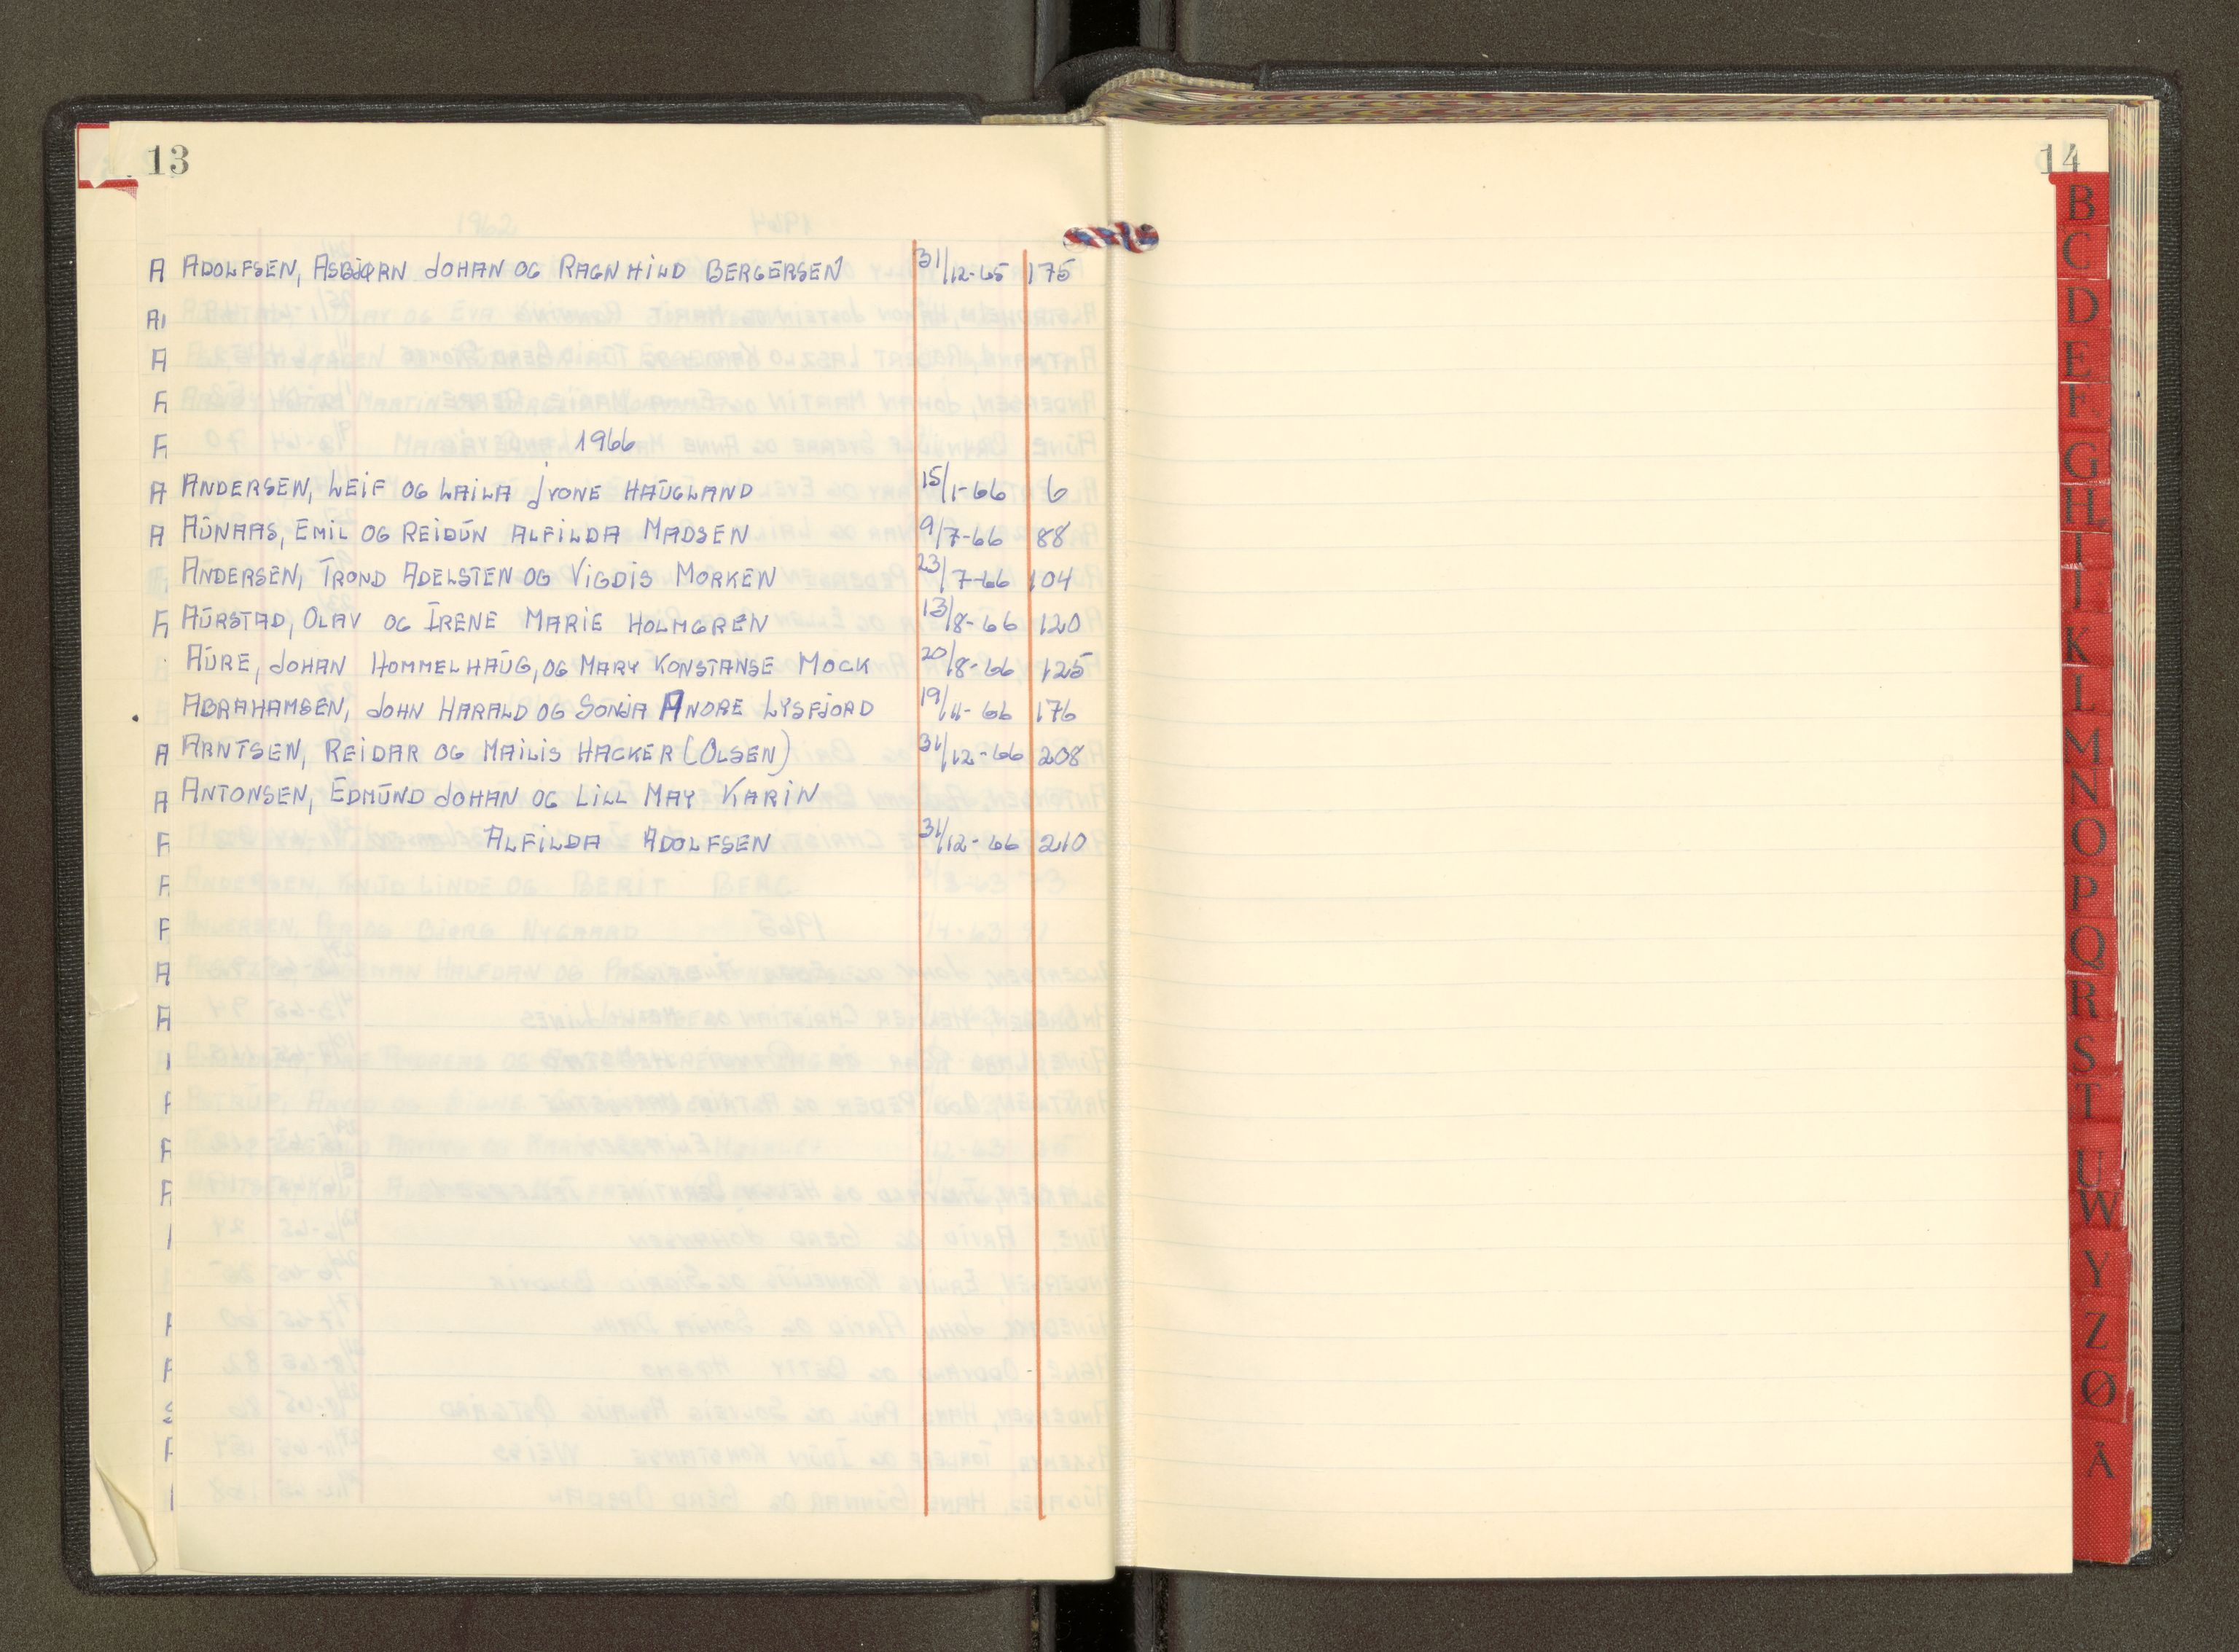 13
ADOLFSEN, ASBJØRN JOHAN OG RAGNHILD BERGERSEN 31/12-65 175
1966
ANDERSEN, LEIF OG LAILA JVONE HAUGLAND 15/1-66 6
AUNAAS, EMIL OG REIDUN ALFILDA MADSEN 9/7-66 88
ANDERSEN, TROND ADELSTEN OG VIGDIS MORKEN 23/7-66 104
AURSTAD, OLAV OG IRENE MARIE HOLMGREN 13/8-66 120
AURE, JOHAN HOMMELHAUG, OG MARY KONSTANSE MOCK 20/8-66 125
ABRAHAMSEN, JOHN HARALD OG SONJA ANDRE LYSFJORD 19/11-66 176
ARNTSEN, REIDAR OG MAILIS HACKER (OLSEN) 31/12-66 208
ANTONSEN, EDMUND JOHAN OG LILL MAY KARIN
ALFILDA ADOLFSEN 31/12-66 210
14
B
C
D
E
F
G
H
I
J
K
L
M
N
O
P
Q
R
S
T
U
W
Y
Z
Ø
Å